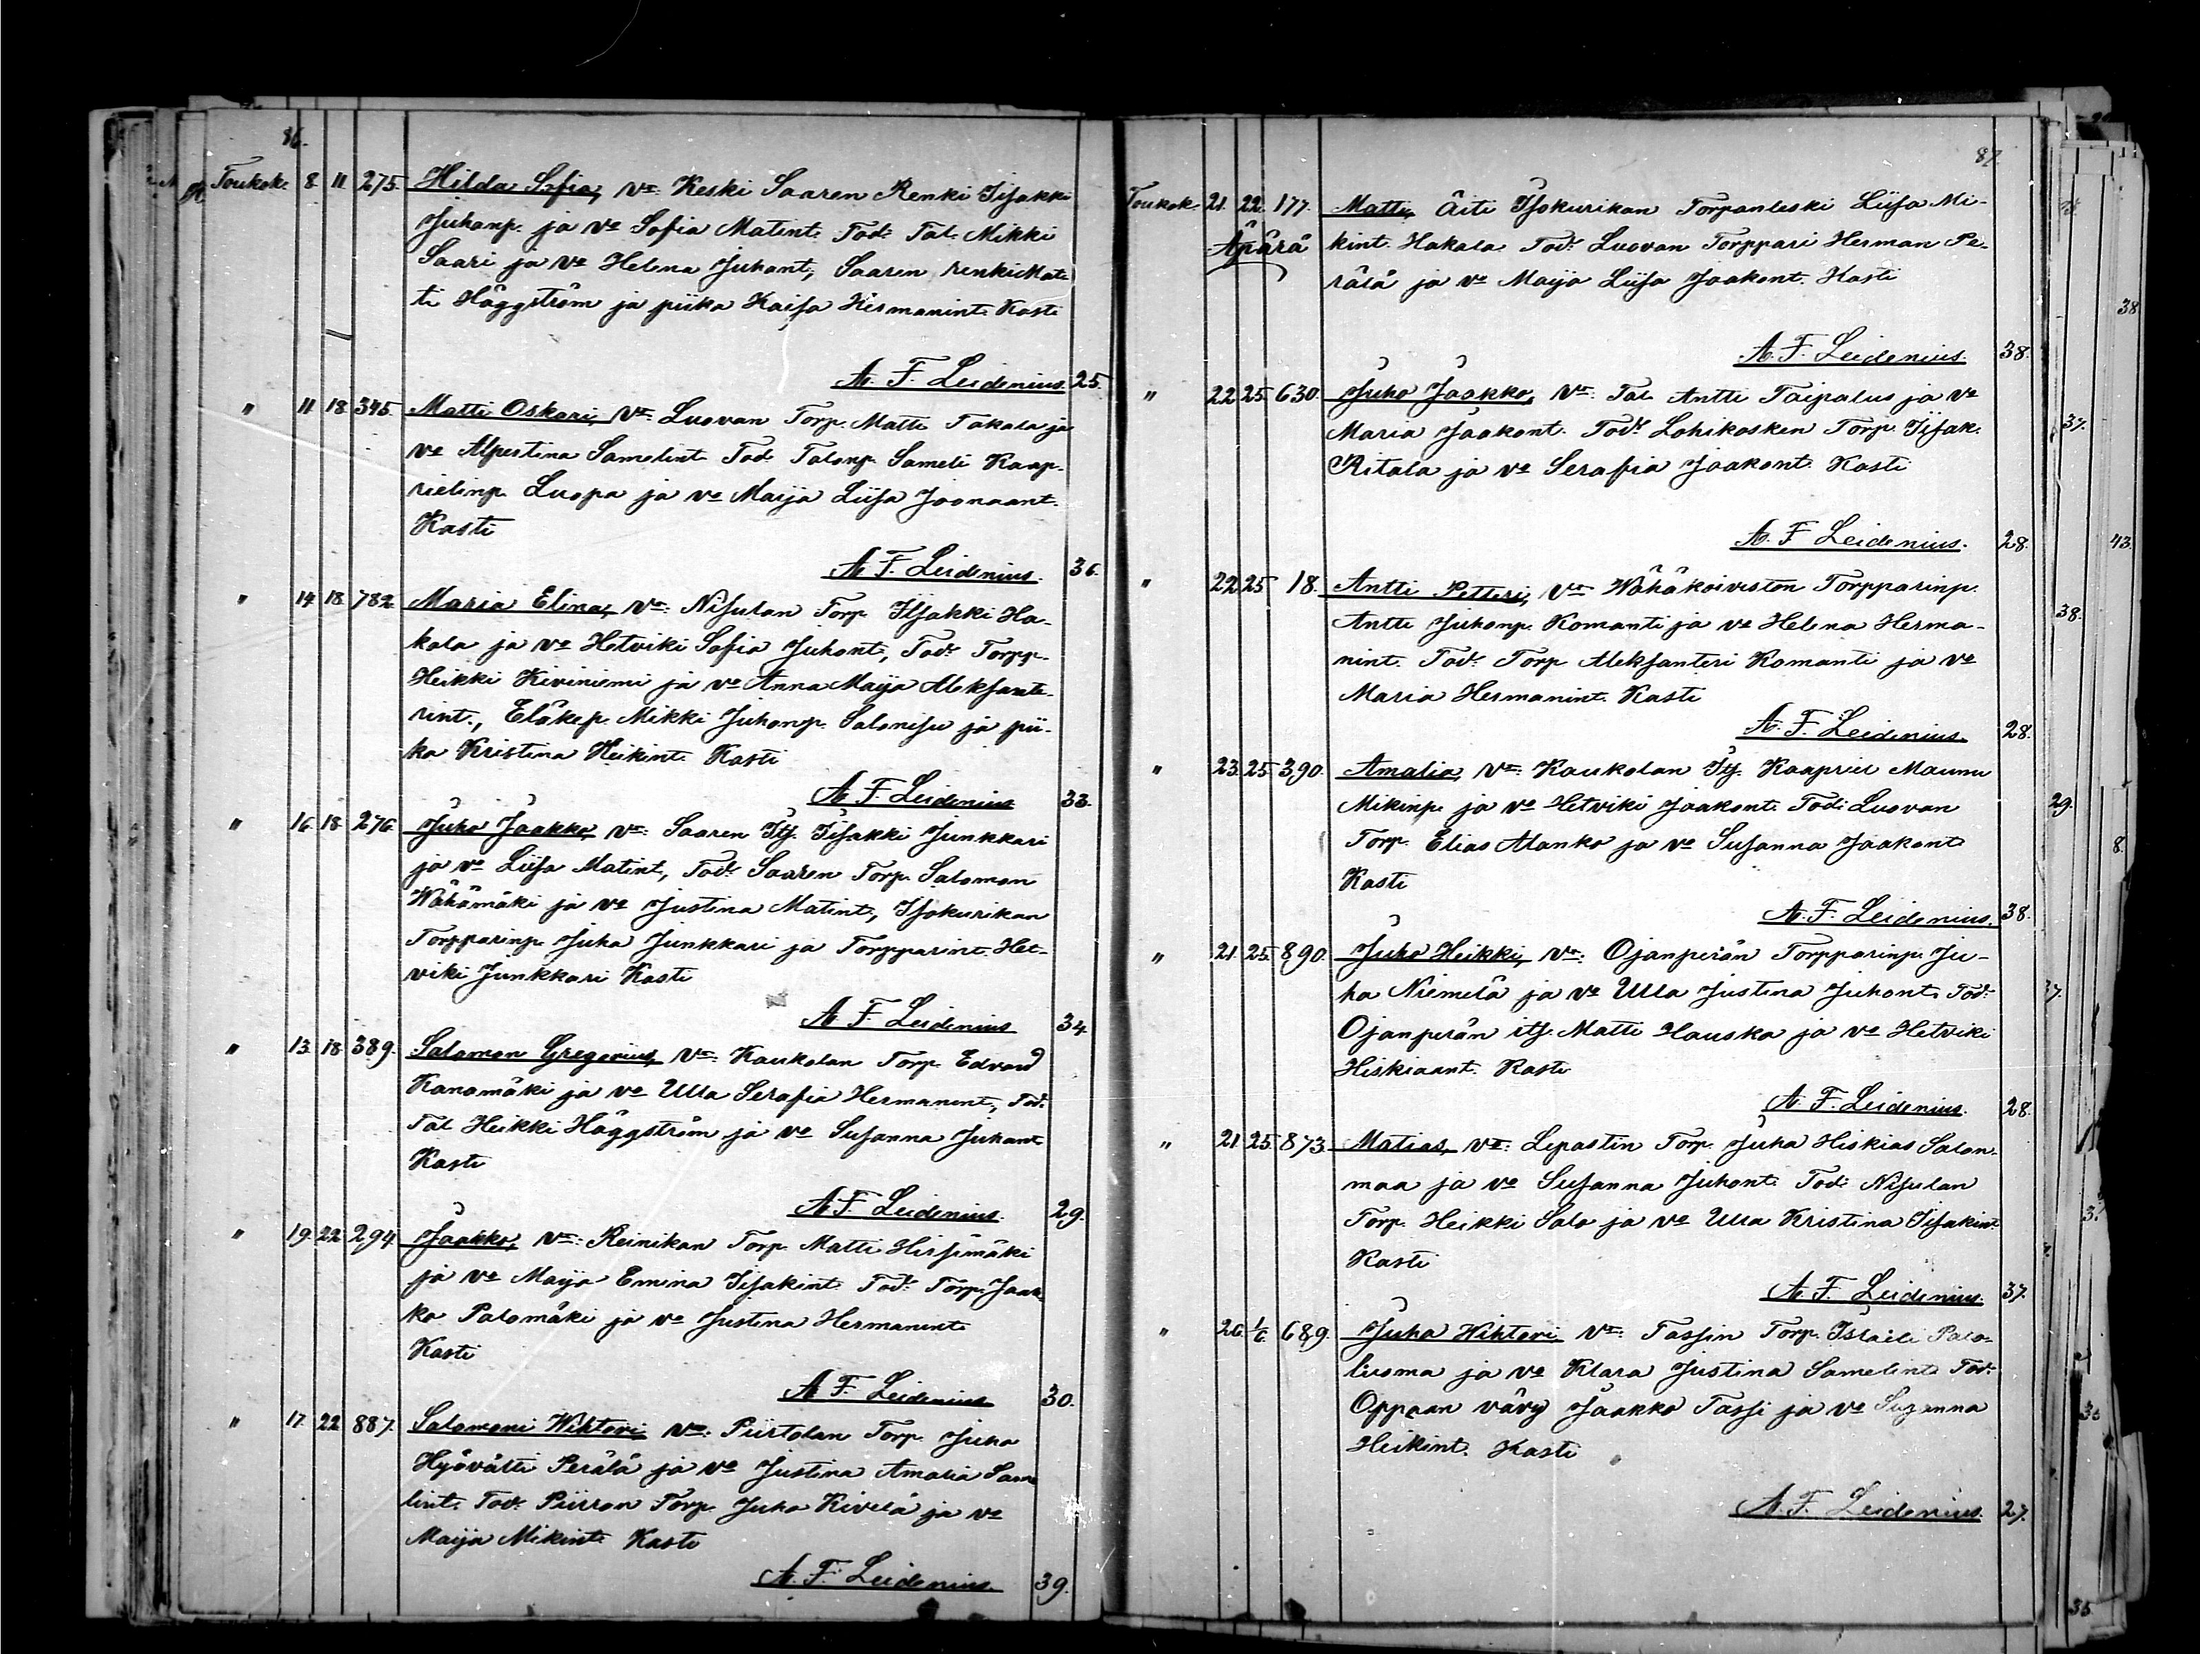 86.
Toukok. 8 11 275. Hilda Sofia, Vn: Keski Saaren Renki Iisakki
Juhonp. ja vo Sofia Matint. Tod: Tal. Mikki
Saari ja vo Helena Juhont, Saaren renki Mat-
ti Häggström ja piika Kaisa Hermanint. Kasti
A. F. Leidenius. 25.
" 11 18 345. Matti Oskari, Vn: Luovan Torp. Matti Takala ja
vo Alpertina Samelint. Tod. Talonp. Sameli Kaap-
rielinp. Luopa ja vo Maija Liisa Joonaant.
Kasti
A. F. Leidenius. 36.
" 14 18 782. Maria Elina, Vn: Nisulan Torp. Iisakki Ha-
kala ja vo Hetviki Sofia Juhont, Tod: Torpp.
Heikki Kiviniemi ja vo Anna Maija Aleksante-
rint., Eläkep. Mikki Juhonp. Salonisu ja pii-
ka Kristina Heikint. Kasti
A. F. Leidenius 33.
" 16 18 276. Juho Jaakko, Vn: Saaren Its. Iisakki Junkkari
ja vo Liisa Matint, Tod: Saaren Torp. Salomon
Wähämäki ja vo Justina Matint, Isokurikan
Torpparinp. Juha Junkkari ja Torpparint. Het-
viki Junkkari Kasti
A. F. Leidenius 34.
" 13 18 389. Salomon Gregorius, Vn: Kaukolan Torp. Edvard
Kanamäki ja vo Ulla Serafia Hermanint, Tod:
Tal. Heikki Häggström ja vo Susanna Juhont
Kasti
A. F. Leidenius. 29.
" 19 22 294. Jaakko, Vn: Reinikan Torp. Matti Hirsimäki
ja vo Maija Emina Iisakint. Tod: Torp. Jaak-
ko Palomäki ja vo Justina Hermanint.
Kasti
A. F. Leidenius 30.
" 17 22 887. Salomoni Wihtori, Vn: Piirtolan Torp. Juho
Hyövälti Perälä ja vo Justina Amalia Same-
lint. Tod: Piirron Torp. Juho Kivelä ja vo
Maija Mikint. Kasti
A. F. Leidenius. 39.
87.
Toukok. 21. 22. 177. Matti, Äiti Isokurikan Torpanleski Liisa Mi-
Äpärä kint. Hakala Tod: Luovan Torppari Herman Pe-
rälä ja vo Maija Liisa Jaakont. Kasti
A. F. Leidenius. 38.
" 22 25 630. Juho Jaakko, Vn: Tal. Antti Taipalus ja vo
Maria Jaakont. Tod: Lohikosken Torp. Iisak.
Ritala ja vo Serafia Jaakont. Kasti
A. F. Leidenius. 28.
" 22 25 18. Antti Petteri, Vn: Wähäkoiviston Torpparinp.
Antti Juhonp. Komanti ja vo Helena Herma-
nint. Tod: Torp. Aleksanteri Komanti ja vo
Maria Hermanint. Kasti
A. F. Leidenius. 28.
" 23 25 390. Amalia, Vn: Kaukolan Its. Kaapriel Maunu
Mikinp. ja vo Hetviki Jaakont. Tod: Luovan
Torp. Elias Alanko ja vo Susanna Jaakont.
Kasti
A. F. Leidenius. 38.
" 21 25 890. Juho Heikki, Vn: Ojanperän Torpparinp. Ju-
ha Niemelä ja vo Ulla Justina Juhont. Tod:
Ojanperän its. Matti Hauska ja vo Hetviki
Hiskiaant. Kasti
A. F. Leidenius. 28.
" 21 25 873. Matias, Vn: Lepastin Torp. Juha Hiskias Salon-
maa ja vo Susanna Juhont. Tod: Nisulan
Torp. Heikki Salo ja vo Ulla Kristina Iisakint.
Kasti
A. F. Leidenius. 37.
" 26 1/6 689. Juha Wihtori Vn: Tassin Torp. Israeli Palo-
luoma ja vo Klara Justina Samelint. Tod:
Oppaan vävy Jaakko Tassi ja vo Suzanna
Heikint. Kasti
A. F. Leidenius. 27.